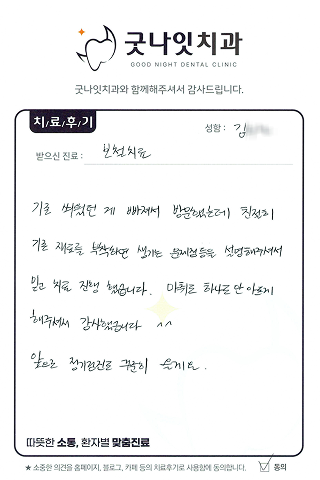 굿나잇치과
GOOD NIGHT DENTAL CLINIC
굿나잇치과와 함께해주셔서 감사드립니다.
치/료/후/기
성함 : 김
받으신 진료 : 보철치료
기로 씌웠던 게 빠져서 방문했는데 친절히
기로 재료를 부착하면 생기는 문제점 등을 설명해주셔서
믿고 치료 진행 했습니다. 마취도 하나도 안 아프게
해주셔서 감사했습니다 ^^
앞으로 정기검진도 꾸준히 올게요.
따뜻한 소통, 환자별 맞춤진료
★ 소중한 의견을 홈페이지, 블로그, 카페 등의 치료후기로 사용함에 동의합니다. 동의